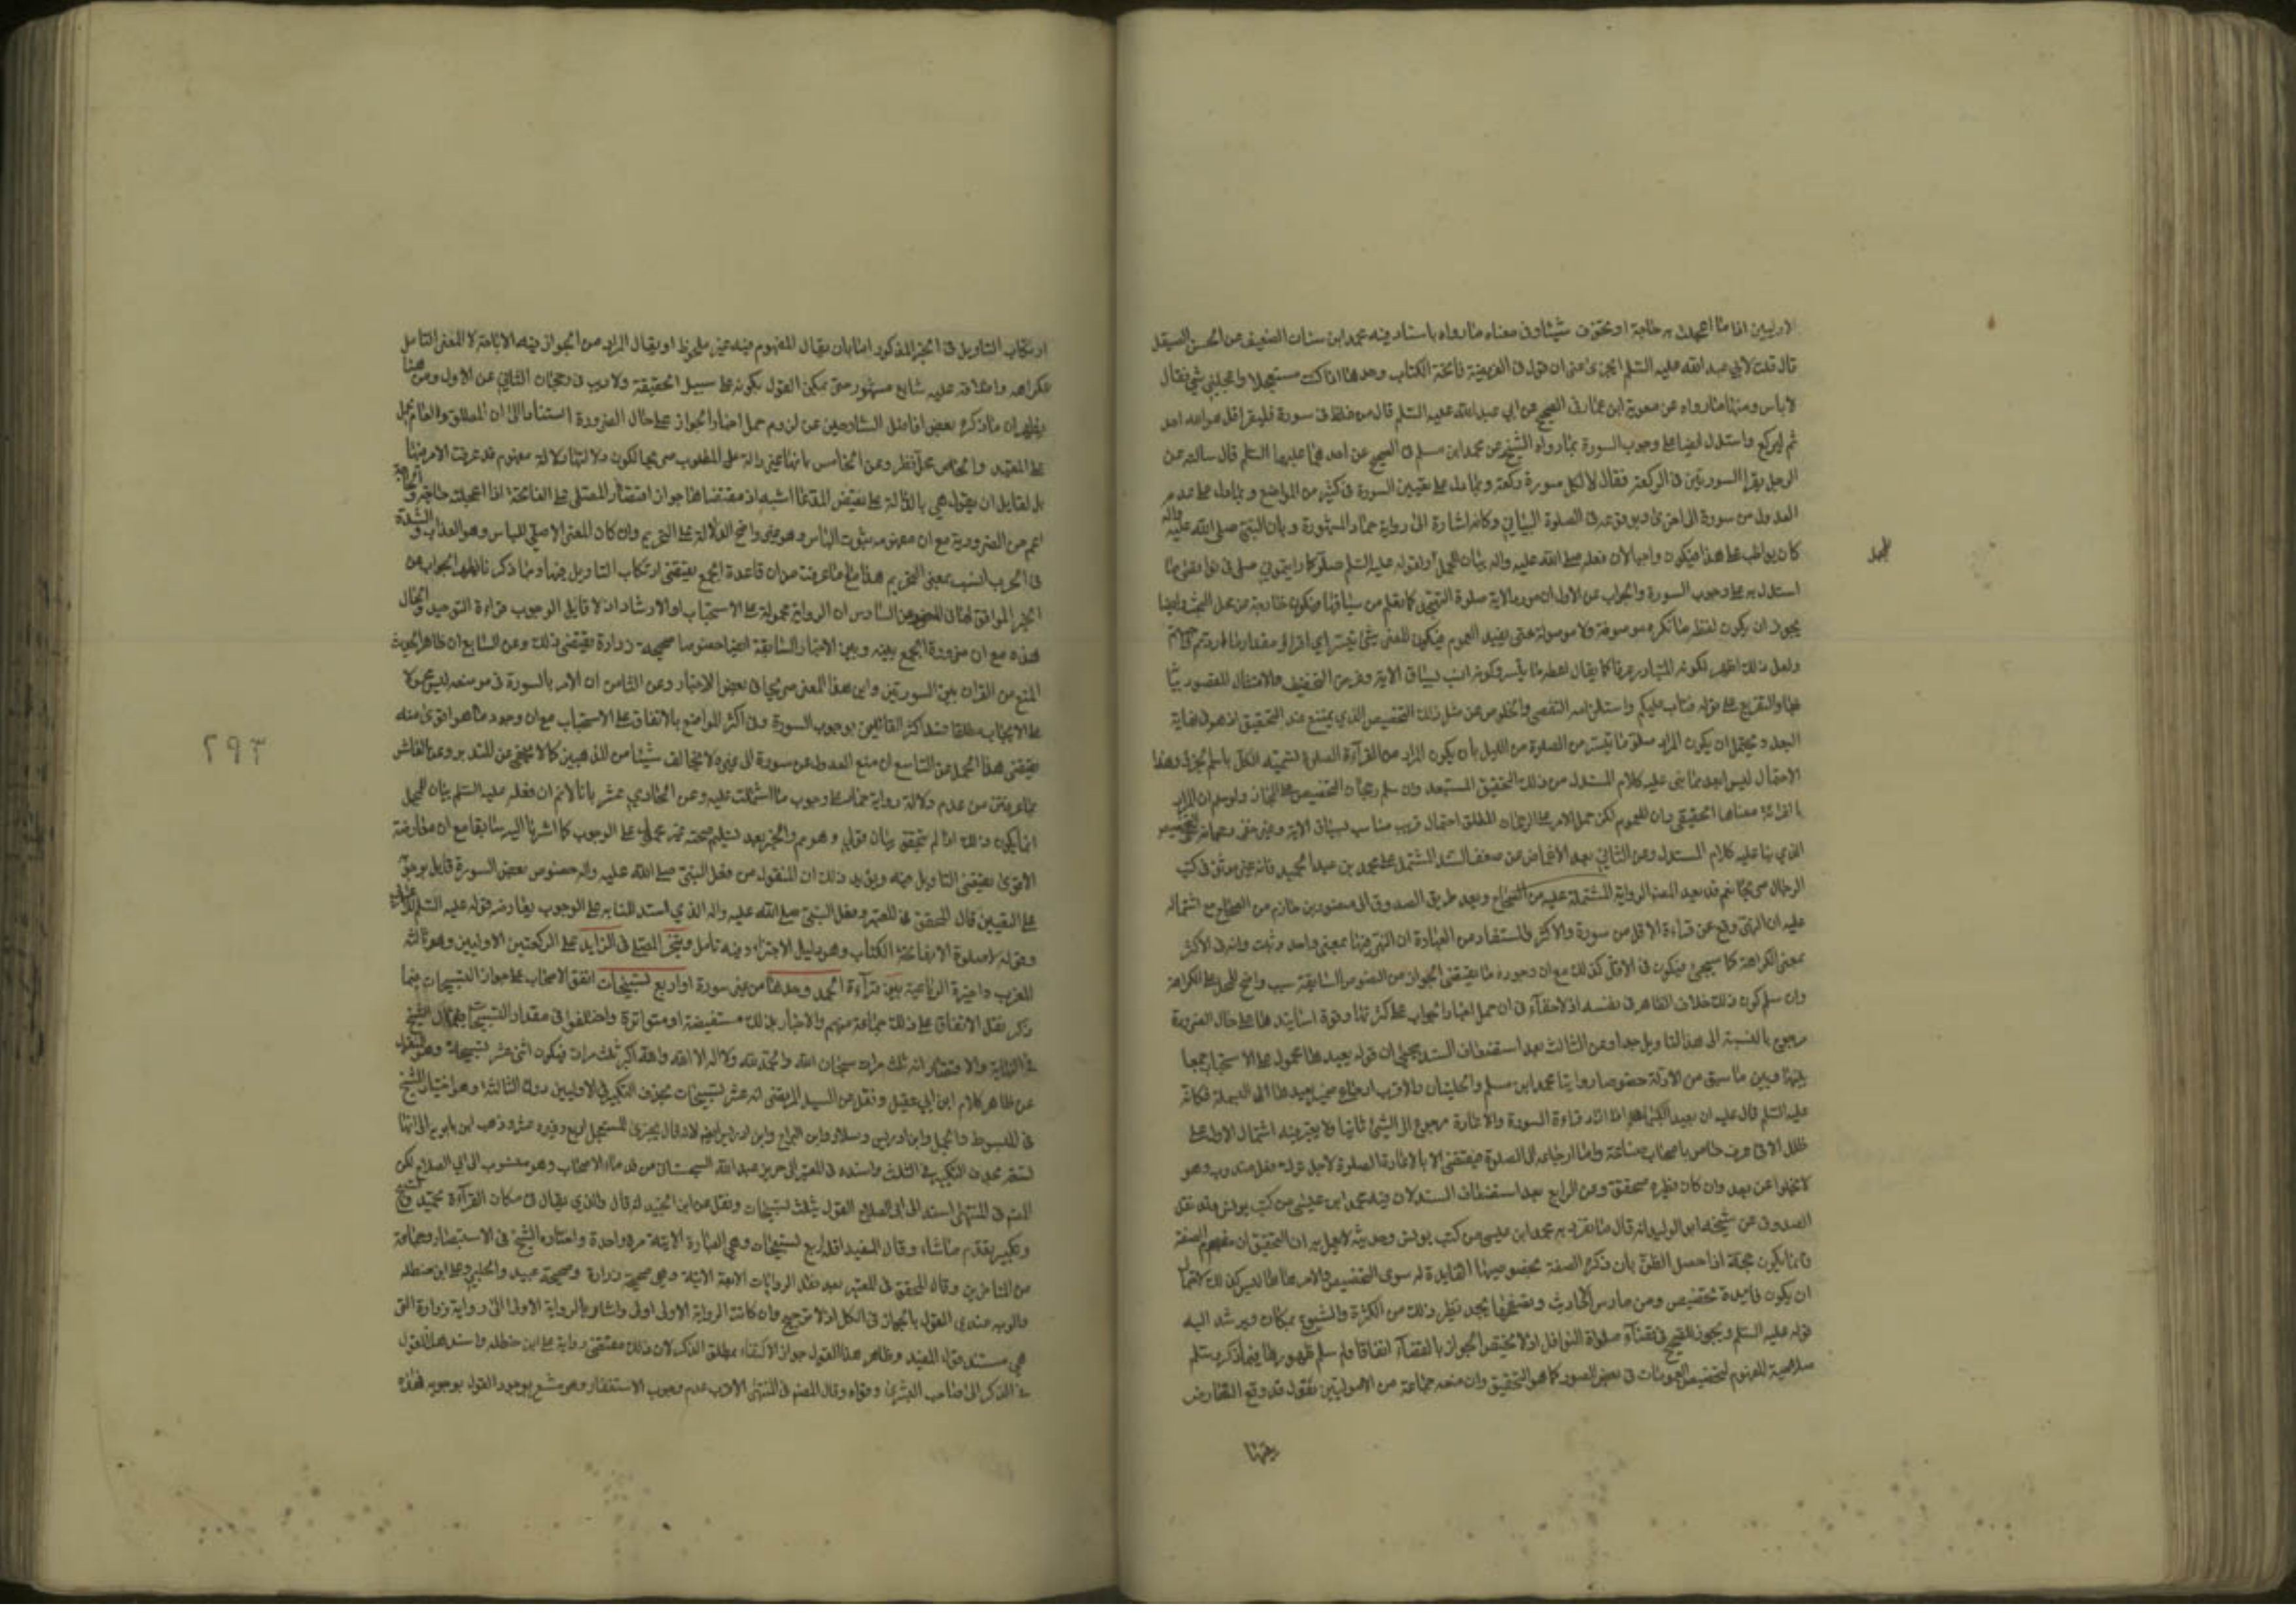 الاوليين اذا ما اعجلت به حاجة او تخوف شيئا وفى معناه ما رواه باسناد فيه محمد ابن سنان الضعيف عن الحسن الصيقل
قال قلت لابي عبد الله عليه السلم ايجزئ عنى ان اقول فى الفريضة فاتحة الكتاب وحدها اذا كنت مستعجلا او اعجلنى شئ فقال
لا باس ومنها ما رواه عن معوية ابن عمار فى الصحيح عن ابي عبد الله عليه السلم قال من غلط فى سورة فليقرا قل هو الله احد
ثم ليركع واستدل ايضا على وجوب السورة بما رواه الشيخ عن محمد ابن مسلم فى الصحيح عن احدهما عليهما السلم قال سالته عن
الرجل يقرا السورتين فى الركعة فقال لا لكل سورة ركعة وبما دل على تعيين السورة فى كثير من المواضع وبما دل على عدم
العدول من سورة الى اخرى وبوقوعه فى الصلوة البيانى وكانه اشارة الى رواية حماد المشهورة وبان النبي صلى الله عليه واله
كان يواظب على هذا فيكون واجبا لان فعله صلى الله عليه واله بيان للمجمل او لقوله عليه السلم صلوا كما رايتموني اصلى
استدل به على وجوب السورة والجواب عن الاول ان مورد الاية صلوة التهجد كما يعلم من سياقها فيكون خارجة عن محل البحث وايضا
يجوز ان يكون لفظ ما نكرة موصوفة ولا موصولة حتى يفيد العموم فيكون المعنى شئ تيسر اي اقراو مقدار ما اردتم
ولعل ذلك اظهر لكونه المتبادر عرفا كما يقال اعطه ما تيسر وكونه انسب لسياق الاية وغرض التخفيف والامتنان المقصود
والتفريع على قوله فتاب عليكم واستلزامه التفصي والخلوص عن مثل ذلك التخصيص الذي يمتنع عند التحقيق اذ هو فى غاية
البعد ويحتمل ان يكون المراد صلوا ما تيسر من الصلوة من الليل بان يكون المراد من القراءة الصلوة تسمية الكل باسم الجزء وهذا
الاحتمال ليس ابعد مما بنى عليه كلام المستدل من ذلك التحقيق المستبعد وان سلم رجحان التخصيص على المجاز ولو سلم ان المراد
بالقراءة معناها الحقيقي وان للعموم لكن حمل الامر على الرجحان المطلق احتمال قريب مناسب لسياق الاية
الذي بنا عليه كلام المستدل وعن الثاني بعد الاغماض عن ضعف السند المشتمل على محمد بن عبد الحميد فانه غير موثق فى كتب
الرجال صريحا نعم قد يعد المصنف الرواية المشتملة عليه من الصحاح ويعد طريق الصدوق الى منصور بن حازم من الصحاح مع اشتماله
عليه ان النهى وقع عن قراءة الاقل من سورة والاكثر والمستفاد من العبارة ان النهى فيهما بمعنى واحد وثبت وانه فى الاكثر
بمعنى الكراهة كما سيجئ فيكون فى الاقل كذلك مع ان وجود ما يقتضى الجواز من النصوص السابقة سبب واضح للحمل على الكراهة
وان سلم كون ذلك خلاف الظاهر فى نفسه اذ لا خفاء فى ان حمل اخبار الجواز على كثرتها وقوة اسانيدها على حال الضرورة
مرجوح بالنسبة الى هذا التاويل جدا وعن الثالث بعد استضعاف السند بيحيى ان قوله يعيدها محمول على الاستحباب جمعا
بينها وبين ما سبق من الادلة خصوصا روايتا محمد ابن مسلم والحلبيان والاقرب ارجاع ضمير يعيدها الى البسملة فكانه
عليه السلم قال عليه ان يعيد البسملة اذا اراد قراءة السورة والاعادة رجوع الى الشئ ثانيا ولا يعتبر فيه اشتمال الاول على
خلل الا فى عرف خاص باصحاب صناعة واما ارجاعه الى الصلوة فيقتضى الا بالاعادة الصلوة لاجل ترك فعل مندوب وهو
لا يخلوا عن بعد وان كان نظيره متحقق وعن الرابع بعد استضعاف السند لان فيه محمد ابن عيسى عن كتب يونس وقد نقل
الصدوق عن شيخه ابن الوليد انه قال ما تفرد به محمد ابن عيسى من كتب يونس وحديثه لا يعمل به ان التحقيق ان مفهوم الصفة
وانما يكون حجة اذا حصل الظن بان ذكر الصفة بخصوصها لا فايدة له سوى التخصيص والامر هاهنا ليس كذلك لاحتمال
ان يكون فايدة تخصيص ومن مارس الاحاديث وتصفحها يجد نظير ذلك من الكثرة والشيوع بمكان ويرشد اليه
قوله عليه السلم ويجوز للصحيح فى قضاء صلوة النوافل اذ لا يختص الجواز بالقضاء اتفاقا ولو سلم ظهورها فيما ذكر يسلم
صلاحية المفهوم لتخصيص العمومات فى بعض الصور كما هو التحقيق وان منعه جماعة من الاصوليين نقول قد وقع التعارض
بينهما
المجمل
ارتكاب التاويل فى الخبر المذكور اما بان يقال المفهوم فيه غير ملحوظ او يقال المراد من الجواز فيه الاباحة لا المعنى الشامل
للكراهة واطلاقه عليه شايع مشهور حتى يمكن القول بكونه على سبيل الحقيقة ولا ريب فى رجحان الثاني عن الاول ومن هنا
يظهر ان ما ذكره بعض افاضل الشارحين من لزوم حمل اخبار الجواز على حال الضرورة استنادا الى ان المطلق والعام يحمل
على المقيد والخاص محل نظر وعن الخامس بانها غير دالة على المطلوب صريحا لكون دلالتها دلالة مفهوم قد عرفت الامر فيها
بل لقايل ان يقول هي بالدلالة على نقيض المدعا اشبه اذ مقتضاها جواز اقتصار المصلى على الفاتحة اذا اعجلت حاجة والحاجة
اعم من الضرورية مع ان مفهومه ثبوت الباس وهو غير واضح الدلالة على التحريم وان كان المعنى الاصلي للباس وهو العذاب والشدة
فى الحرب انسب بمعنى التحريم هذا مع ما عرفت من ان قاعدة الجمع يقتضى ارتكاب التاويل فيها وما ذكرنا ظهر الجواب عن
الخبر الموافق لها فى المضمون وعن السادس ان الرواية محمولة على الاستحباب او الارشاد اذ لا قايل الوجوب قراءة التوحيد والحال
هذه مع ان ضرورة الجمع بينه وبين الاخبار السابقة ايضا خصوصا صحيحة زرارة يقتضى ذلك وعن السابع ان ظاهر الحديث
المنع من القران بين السورتين واين هذا المعنى صريحا فى بعض الاخبار وعن الثامن ان الامر بالسورة فى موضعه ليس محمولا
على الايجاب مطلقا عند اكثر القائلين بوجوب السورة وفى اكثر المواضع بالاتفاق على الاستحباب مع ان وجود ما هو اقوى منه
يقتضى هذا الحمل وعن التاسع ان منع العدول عن سورة الى غيره لا يخالف شيئا من المذهبين كما لا يخفى عن المتدبر وعن العاشر
بما عرفت من عدم دلالة رواية حماد على وجوب ما اشتملت عليه وعن الحادي عشر بانا لا نم ان فعله عليه السلم بيان للمجمل
انما يكون ذلك اذا لم يتحقق بيان قولي وهو مم والخبر بعد تسليم صحته غير محمول على الوجوب كما اشرنا اليه سابقا مع ان معارضة
الاقوى يقتضى التاويل فيه ويؤيد ذلك ان المنقول من فعل النبي صلى الله عليه واله خصوص بعض السورة قايل بوجوبه
على التعيين قال المحقق فى المعتبر وفعل النبي صلى الله عليه واله الذي استدللنا به على الوجوب يعارضه قوله عليه السلم
وقوله لا صلوة الا بفاتحة الكتاب وهو دليل الاجتزاء وفيه تامل ويتخير المصلى فى الزايد على الركعتين الاوليين وهو ثالثة
المغرب واخيرة الرباعية بين قراءة الحمد وحدها من غير سورة او اربع تسبيحات اتفق الاصحاب على جواز التسبيحات فيما
ذكر نقل الاتفاق على ذلك جماعة منهم والاخبار بذلك مستفيضة او متواترة واختلفوا فى مقدار التسبيحات فقال الشيخ
فى النهاية والاقتصاد انه ثلث مرات سبحان الله والحمد لله ولا اله الا الله والله اكبر ثلث مرات فيكون اثنى عشر تسبيحة وهو المنقول
عن ظاهر كلام ابن ابي عقيل ونقل عن السيد المرتضى انه عشر تسبيحات بحذف التكبير فى الاوليين دون الثالثة وهو اختيار الشيخ
فى المبسوط والجمل وابن ادريس وسلار وابن البراج وابن ادريس ايضا لانه قال يجزئ للمستعجل اربع وغيره عشر وذهب ابن بابويه الى انها
تسع بحذف التكبير فى الثلث واسنده فى المعتبر الى حريز بن عبد الله السجستاني من قدماء الاصحاب وهو منسوب الى ابي الصلاح لكن
المصنف فى المنتهى اسند الى ابي الصلاح القول بثلث تسبيحات ونقل عن ابن الجنيد انه قال والذي يقال فى مكان القراءة تحميد وتسبيح
وتكبير يقدم ما شاء وقال المفيد اقله اربع تسبيحات وهي العبارة الاتية مرة واحدة واختاره الشيخ فى الاستبصار وجماعة
من المتاخرين وقال المحقق فى المعتبر بعد نقل الروايات الاربعة الاتية وهي صحيحة زرارة وصحيحة عبيد والحلبي وعلى بن حنظلة
والوجه عندي القول بالجواز فى الكل اذ لا ترجيح وان كانت الرواية الاولى اولى واشار بالرواية الاولى الى رواية زرارة التى
هي مستند قول المفيد وظاهر هذا القول جواز الاكتفاء بمطلق الذكر لان ذلك مقتضى رواية على ابن حنظله واسند هذا القول
فى الذكرى الى صاحب البشرى وقواه وقال المصنف فى المنتهى الاقرب عدم وجوب الاستغفار وهو مشعر بوجود القول بوجوبه فهذه
٢٩٣